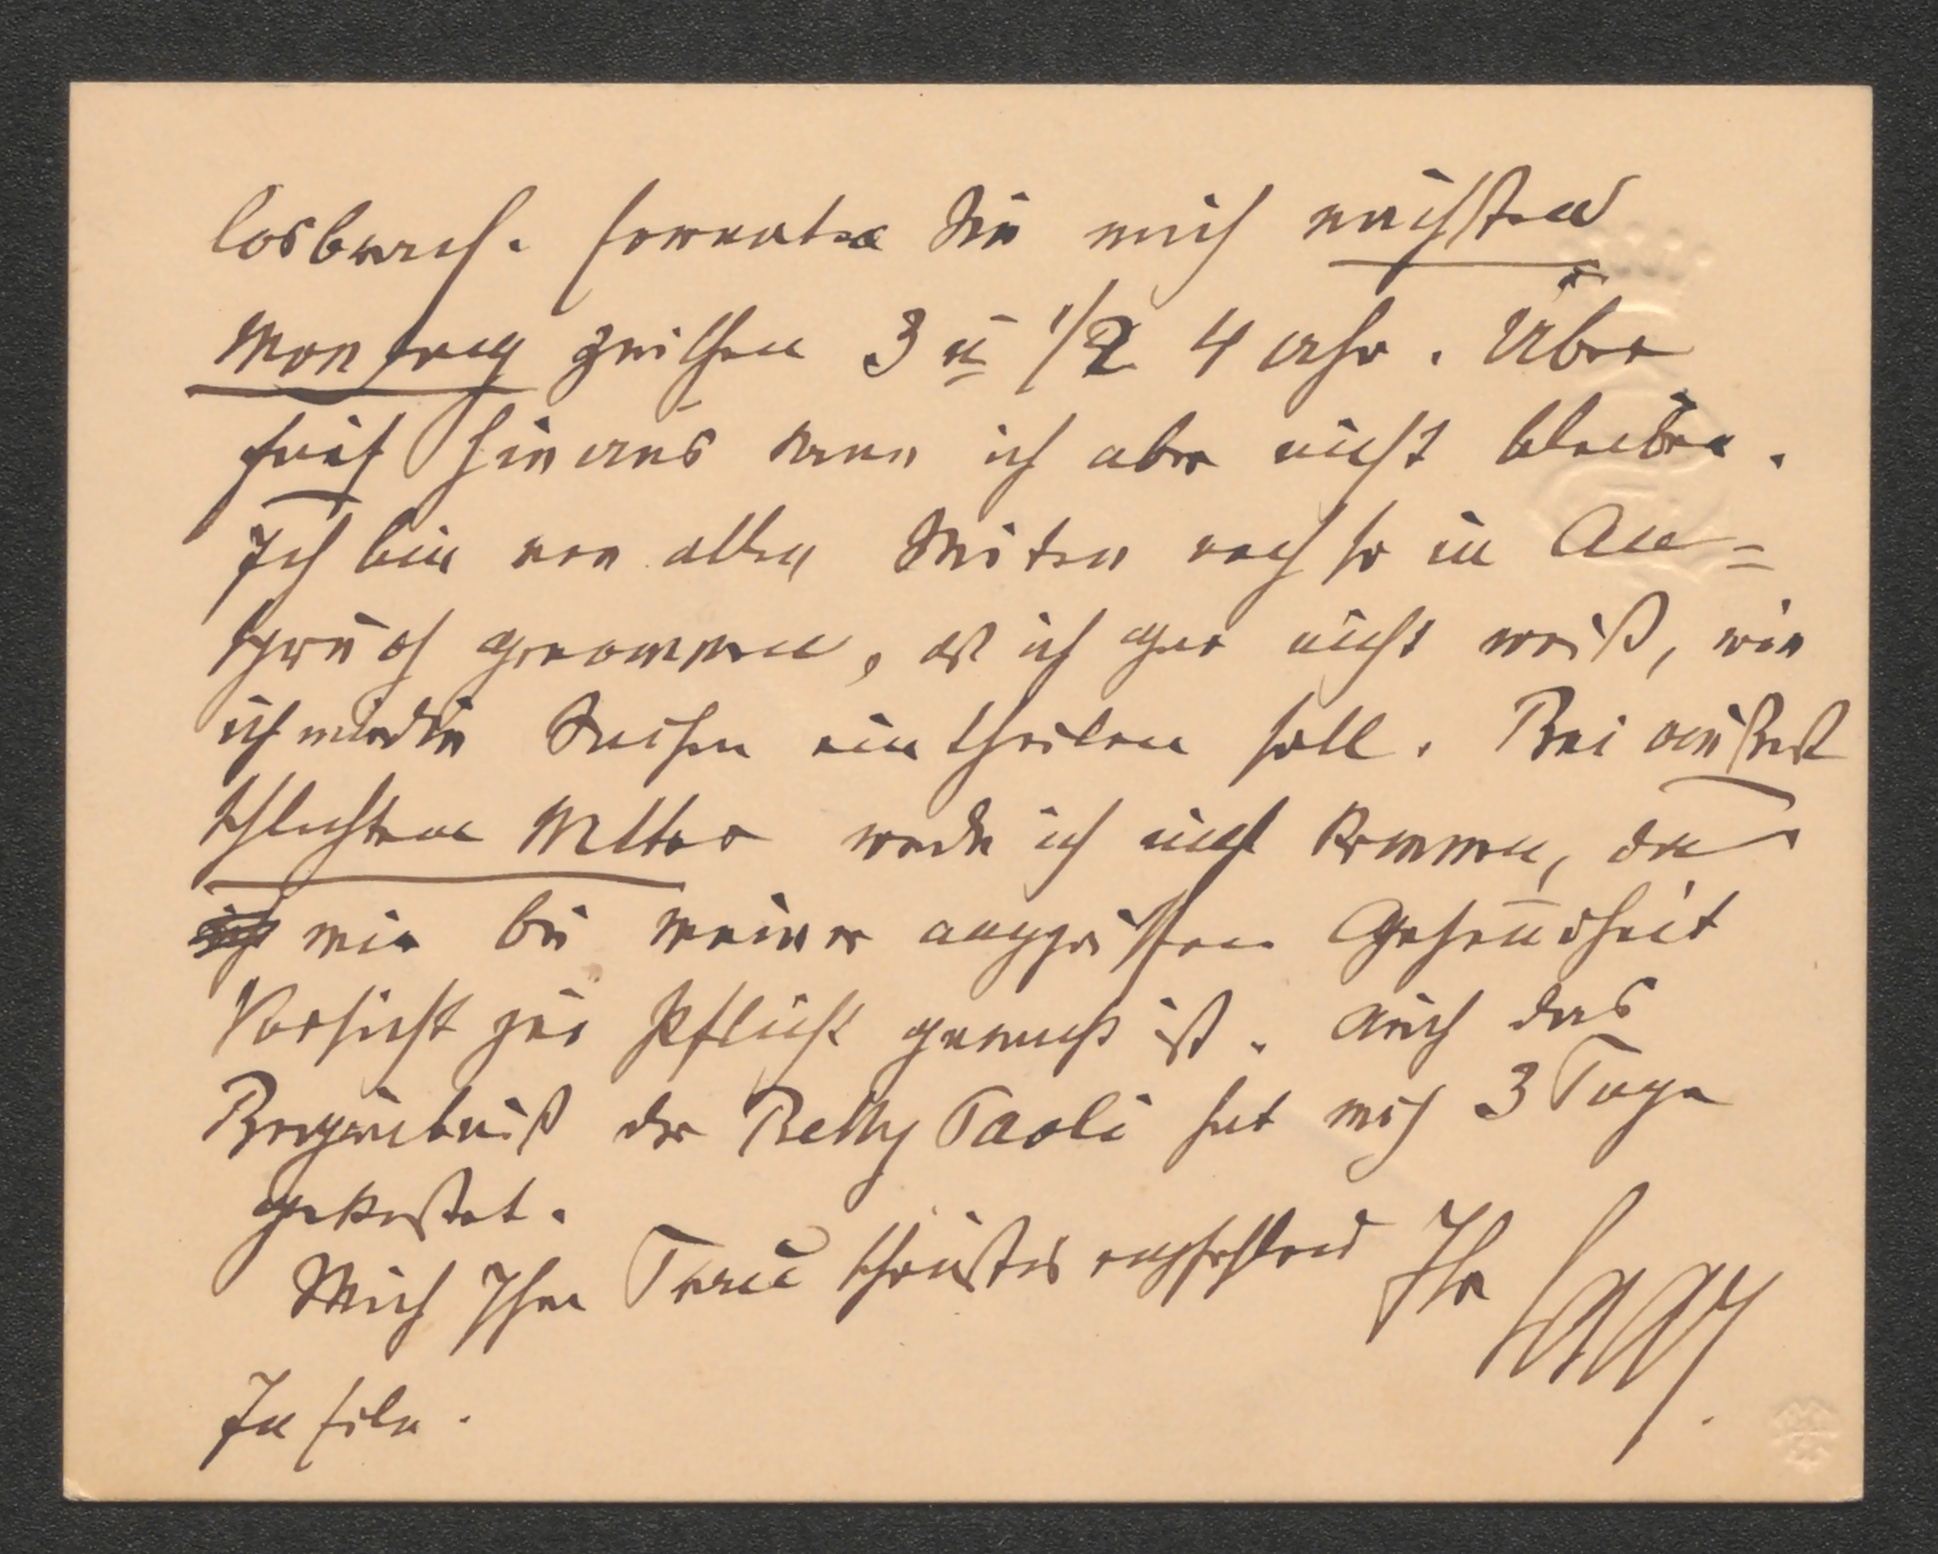 losbrach. Erwarten Sie mich nächsten
Montag zwischen 3 u 1/2 4 Uhr. Über
fünf hinaus kann ich aber nicht bleiben.
Ich bin von allen Seiten noch so in An=
spruch genommen, daß ich gar nicht weiß, wie
ich mir die Sachen eintheilen soll. Bei äußerst
schlechtem Wetter werde ich nicht kommen, da
ich mir bei meiner angegriffenen Gesundheit
Vorsicht zur Pflicht gemacht ist. Auch das
Begräbniß der Betty Paoli hat mich 3 Tage
gekostet.
Mich Ihrer Frau schönstens empfehlend Ihr Saar.
In Eile.